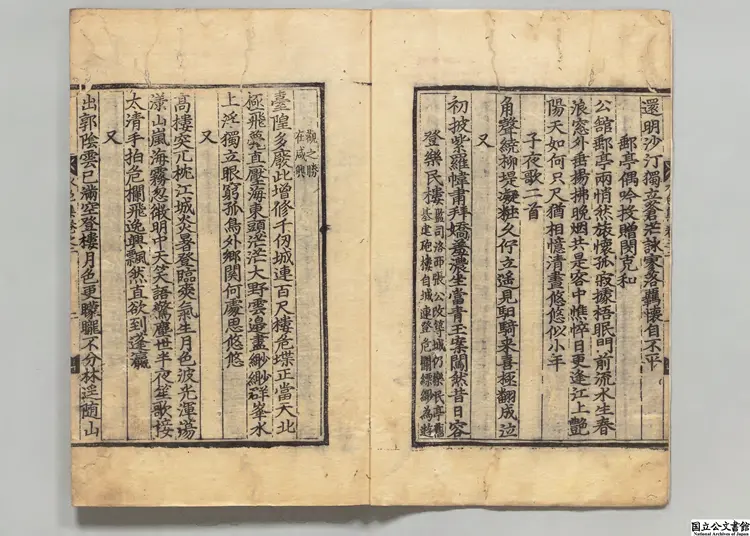 還明沙汀獨立蒼茫詠寥落羈懷自不平
郵亭偶吟投贈閔克和
公館郵亭兩悄然旅懷孤寂據梧眠門前流水生春
浪窓外垂楊拂晩烟共是客中憔悴日更逢江上艷
陽天如何只尺猶相憶清晝悠悠似小年
子夜歌二首
角聲統柳堤凝粧久佇立遥見馹騎来喜極翻成泣
又
初披紫羅幃肅拜嬌羞濃坐當青玉案闐然昔日容
登樂民樓
監司洛西張公改築城仍樂民亭舊
基建砲樓自城連登危欄縹緲為遊
觀之勝
在咸興
臺隍多廢此增修千仞城連百尺樓危堞正當天北
極飛甍直壓海東頭茫茫大野雲邊盡緲緲群峯水
上浮獨立眼窮孤鳥外鄕關何處思悠悠
又
高樓突兀枕江城炎暑登臨爽氣生月色波光渾蕩
漾山嵐海霧忽微明中天笑語驚塵世半夜笙歌接
太清手拍危欄飛逸興飄然直欲到蓬瀛
又
出郭陰雲已滿空登樓月色更朦朧不分林逕随山
国立公文書館
National Archives of Japan